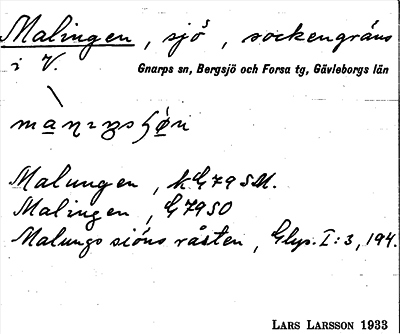 Malingen, sjö, sockengräns
i V.
Gnarps sn, Bergsjö och Forsa tg, Gävleborgs län
Malungen, kG79SM.
Malingen, G79SO
Malungs siöns råsten, Glys. I:3, 194.
LARS LARSSON 1933